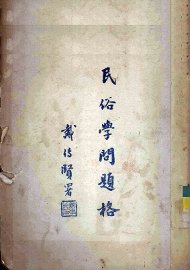 民俗學問題格
戴傳賢署